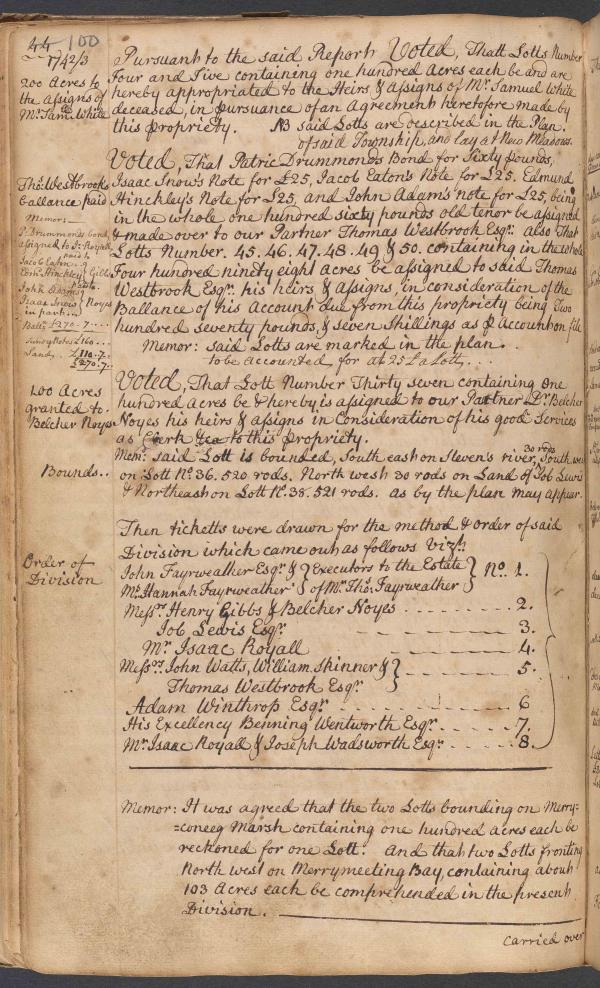 44 100
1742/3
Pursuant to the said Report Voted, Thatt Lotts Number
200 Acres to
the Assigns of
Mr. Sam. White
Four and Five containing one hundred Acres each be and are
hereby appropriated to the Heirs & Assigns of Mr. Samuel White
deceased, in pursuance of an Agreement heretofore made by
this Propriety. NB said Lotts are described in the Plan
of said Township, and lay at New Meadows.
Voted, That Patric Drummonds Bond for Sixty Pounds,
Isaac Snow's Note for £25, Jacob Eaton's Note for £25. Edmund
Tho. Westbrooks
ballance paid
Hinckley's Note for £25, and John Adam's note for £25, being
in the whole one hundred sixty pounds old tenor be assigned
& made over to our Partner Thomas Westbrook Esqr. also That
Lotts Number. 45. 46. 47. 48. 49 & 50. containing in the whole
Four hundred ninety eight acres be assigned to said Thomas
Westbrook Esqr. his heirs & assigns, in consideration of the
Ballance of his Account due from this propriety being Two
hundred seventy pounds, & seven Shillings as P Account on file
Memor:
P. Drummonds bond
assigned to I. Royall
Jacob Eaton
Hinckley Gibbs
John Adams
Isaac Snow Noyes
in part
Balla. £270..7....
Sundry Notes £160...
Land... £110..7..
£270..7..
Memor: said Lotts are marked in the plan..
to be accounted for at 25£ a Lott...
100 Acres
granted to.
Belcher Noyes
Voted, That Lott Number Thirty seven containing one
hundred Acres be & hereby is assigned to our Partner Dr. Belcher
Noyes his heirs & assigns in Consideration of his good Services
as Clerk to this Propriety.
Bounds..
Mem: said Lott is bounded, South east on Steven's river, 30 rods South west
on Lott No. 36. 520 rods. North west 30 rods on Land of Job Lewis
& Northeast on Lott No. 38. 521 rods. as by the plan may appear.
Then ticketts were drawn for the method & order of said
Division which came out as follows Vizt.
Order of
Division
John Fayrweather Esqr. & Executors to the Estate No. 1.
Mr. Hannah Fayrweather of Mr. Tho. Fayrweather
Messrs. Henry Gibbs & Belcher Noyes ........ 2.
Job Lewis Esqr. 3.
Mr. Isaac Royall 4.
Messrs. John Watts, William Skinner & 5.
Thomas Westbrook Esqr.
Adam Winthrop Esqr. 6
His Excellency Benning Wentworth Esqr. ..... 7.
Mr. Isaac Royall & Joseph Wadsworth Esqr. .... 8.
Memor: It was agreed that the two Lotts bounding on Merry=
=coneeg Marsh containing one hundred acres each be
reckoned for one Lott. And that two Lotts fronting
North west on Merrymeeting Bay, containing about
103 Acres each be comprehended in the present
Division.
Carried over